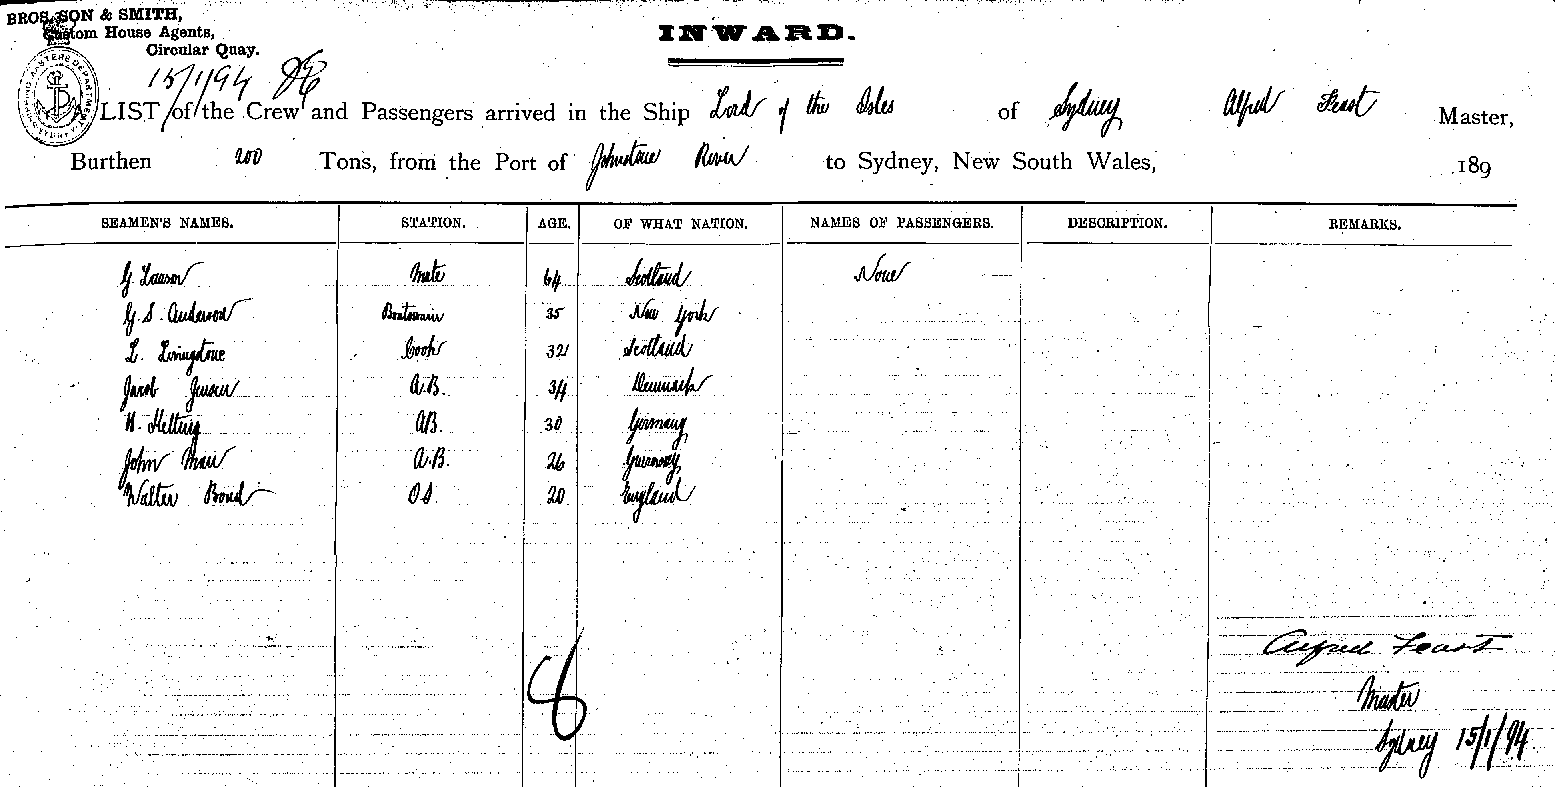 BROS, SON & SMITH,
Custom House Agents,
Circular Quay.
INWARD.
15/1/94
A LIST of the Crew and Passengers arrived in the Ship Lord of the Isles of Sydney Alfred Feast Master,
Burthen 200 Tons, from the Port of Johnstone River to Sydney, New South Wales, 189
SEAMEN'S NAMES. STATION. AGE. OF WHAT NATION. NAMES OF PASSENGERS. DESCRIPTION. REMARKS.
G. Lawson Mate 64 Scotland None
G. S. Anderson Boatswain 35 New York
L. Livingstone Cook 32 Scotland
Jacob Jensen A.B. 34 Denmark
H. Hettig A.B. 30 Germany
John A.B. 26 Guernsey
Walter Bond O.S. 20 England
8
Alfred Feast
Master
Sydney 15/1/94